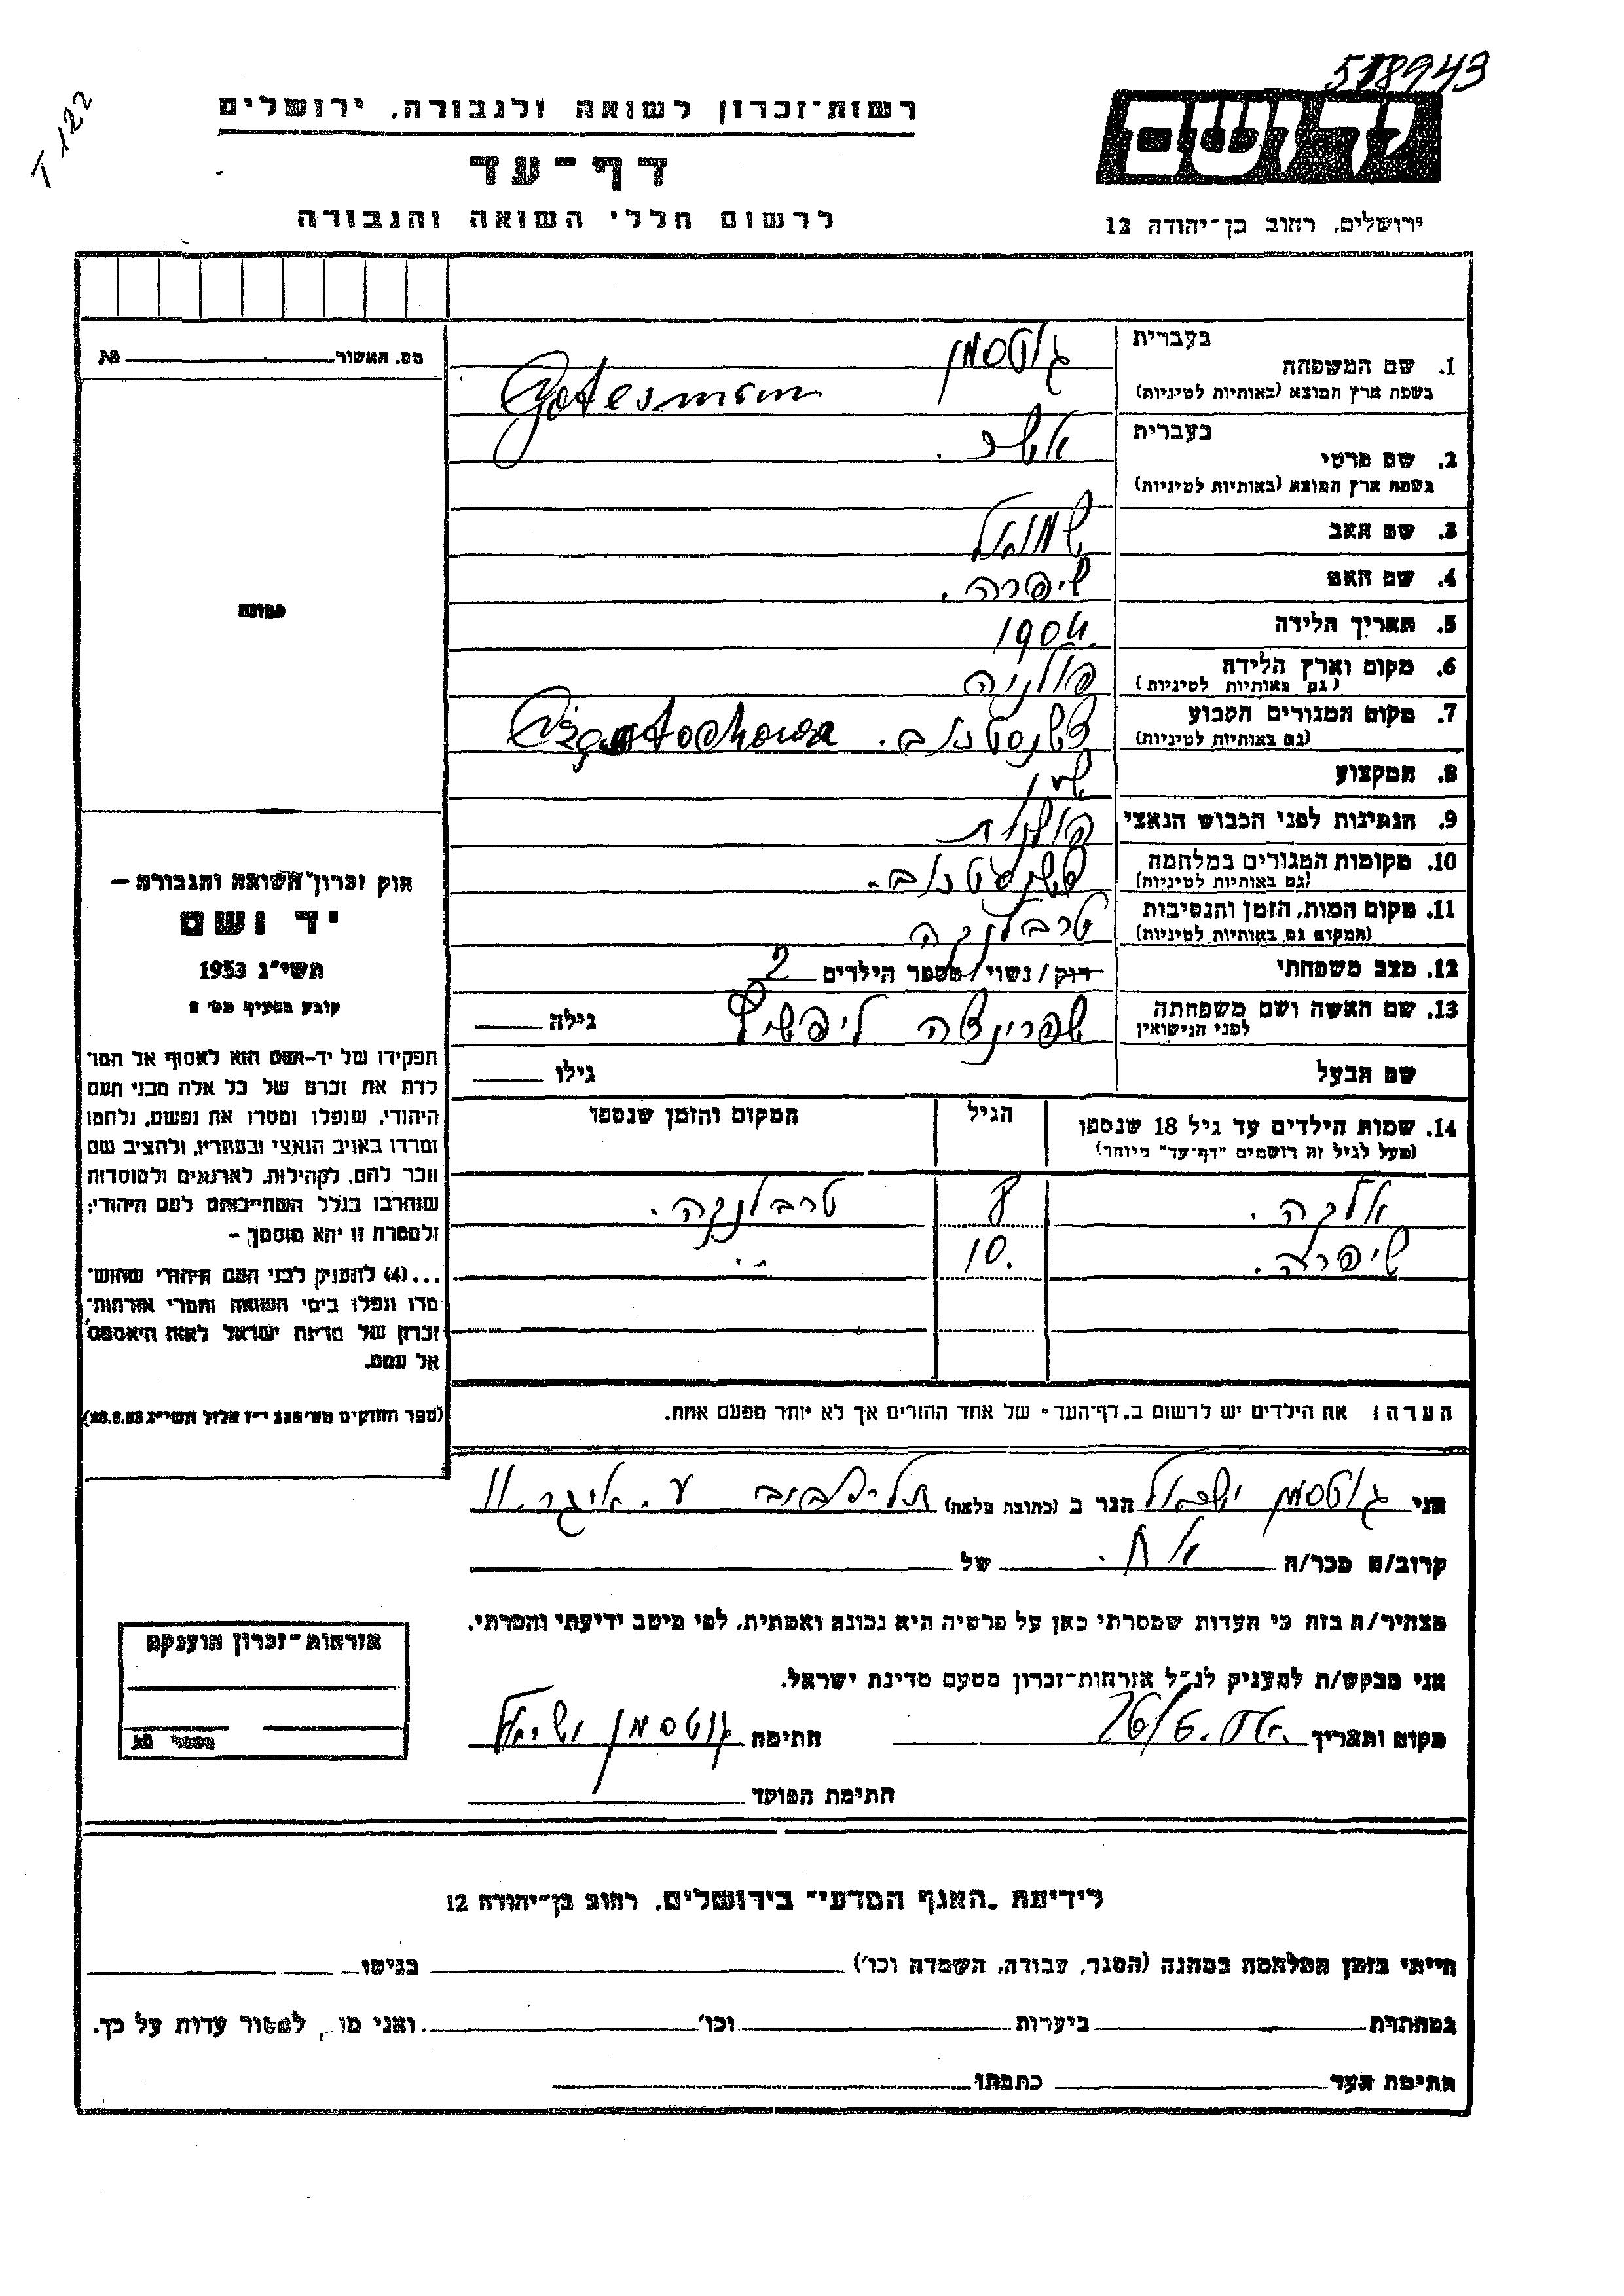 518943
T 122
רשות-זכרון לשואה ולגבורה, ירושלים
דף-עד
לרשום חללי השואה והגבורה
ידושם
ירושלים, רחוב בן-יהודה 12
מס. האשור № 
בעברית
1. שם המשפחה
בשפת ארץ המוצא (באותיות לטיניות)
גוטסמן
Gotesmann
בעברית
2. שם פרטי
בשפת ארץ המוצא (באותיות לטיניות)
אשר.
3. שם האב שמואל
4. שם האם שיפרה.
5. תאריך הלידה 1904.
6. מקום וארץ הלידה פולניה
(גם באותיות לטיניות)
7. מקום המגורים הקבוע
(גם באותיות לטיניות)
Częstochowa
8. המקצוע
9. הנתינות לפני הכבוש הנאצי פולנית
10. מקומות המגורים במלחמה
(גם באותיות לטיניות)
11. מקום המות, הזמן והנסיבות טרבלנקה
(המקום גם באותיות לטיניות)
12. מצב משפחתי רוק/ נשוי/ מספר הילדים 2
13. שם האשה ושם משפחתה
לפני הנישואין
שפרינצה ליפשיץ גילה
שם הבעל גילו
14. שמות הילדים עד גיל 18 שנספו
(מעל לגיל זה רושמים "דף-עד" מיוחד)
הגיל
המקום והזמן שנספו
אלקה. 8 טרבלנקה.
שיפרה. 10. " "
הערה: את הילדים יש לרשום ב"דף-העד" של אחד ההורים אך לא יותר מפעם אחת.
תמונה
חוק זכרון השואה והגבורה –
יד ושם
תשי"ג 1953
קובע בסעיף מס' 2
תפקידו של יד-ושם הוא לאסוף אל המו־
לדת את זכרם של כל אלה מבני העם
היהודי, שנפלו ומסרו את נפשם, נלחמו
ומרדו באויב הנאצי ובעוזריו, ולהציב שם
וזכר להם, לקהילות, לארגונים ולמוסדות
שנחרבו בגלל השתייכותם לעם היהודי;
ולמטרה זו יהא מוסמך –
...(4) להעניק לבני העם היהודי שהוש־
מדו ונפלו בימי השואה והמרי אזרחות־
זכרון של מדינת ישראל לאות היאספם
אל עמם.
(ספר החוקים מס' 132 י"ז אלול תשי"ג 28.8.53)
אני גוטסמן ישראל הגר ב (כתובת מלאה) תל-אביב
קרוב/ה מכר/ה אח. של
מצהיר/ה בזה כי העדות שמסרתי כאן על פרטיה היא נכונה ואמתית, לפי מיטב ידיעתי והכרתי.
אני מבקש/ת להעניק לנ"ל אזרחות-זכרון מטעם מדינת ישראל.
מקום ותאריך חתימה גוטסמן ישראל
חתימת הפוקד
אזרחות-זכרון הוענקה
מספר №
לידיעת "האגף המדעי" בירושלים, רחוב בן-יהודה 12
הייתי בזמן המלחמה במחנה (הסגר, עבודה, השמדה וכו') בגיטו
במחתרת ביערות וכו' ואני מו למסור עדות על כך.
חתימת העד כתבתו